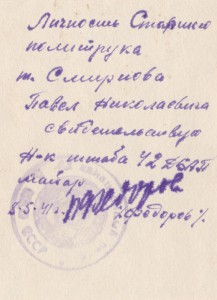 Личность Старшего
политрука
т. Смирнова
Павел Николаевича
свидетельствую
Н-к штаба 42 ДБАП
майор
8-5-41г. /Федоров/.
СССР